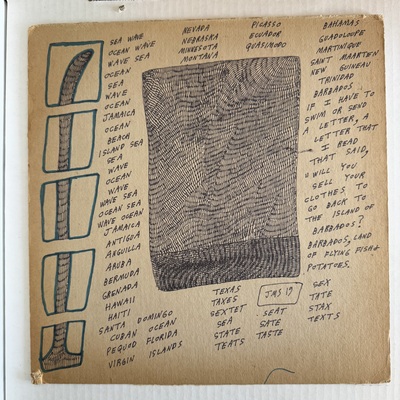 SEA WAVE
OCEAN WAVE
WAVE SEA
OCEAN
SEA
WAVE
OCEAN
JAMAICA
OCEAN
BEACH
ISLAND SEA
SEA
WAVE
OCEAN
WAVE
WAVE SEA
OCEAN SEA
WAVE OCEAN
JAMAICA
ANTIGUA
ANGUILLA
ARUBA
BERMUDA
GRENADA
HAWAII
HAITI
SANTA DOMINGO
CUBAN OCEAN
PEQUOD FLORIDA
VIRGIN ISLANDS
NEVADA
NEBRASKA
MINNESOTA
MONTANA
PICASSO
ECUADOR
QUASIMODO
BAHAMAS
GUADOLOUPE
MARTINIQUE
SAINT MAARTEN
NEW GUINEAU
TRINIDAD
BARBADOS
IF I HAVE TO
SWIM OR SEND
A LETTER, A
LETTER THAT
I READ
THAT SAID,
WILL YOU
SELL YOUR
CLOTHES TO
GO BACK TO
THE ISLAND OF
BARBADOS?
BARBADOS, LAND
OF FLYING FISH &
POTATOES.
TEXAS
TAXES
SEXTET
SEA
STATE
TEATS
JMS 19
SEAT
SATE
TASTE
SEX
TATE
STAX
TEXTS